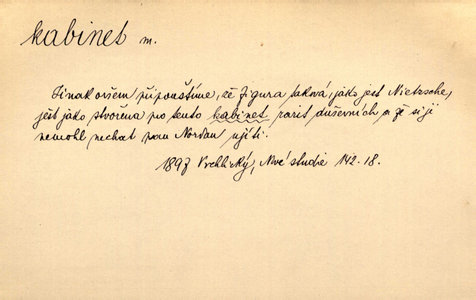 kabinet m.
Jinak ovšem připouštíme, že figura taková, jako jest Nietzsche,
jest jako stvořena pro tento kabinet rarit duševních, a že si ji
nemohl nechat pan Nordau ujíti.
1897 Vrchlický, Nové studie 142-18.